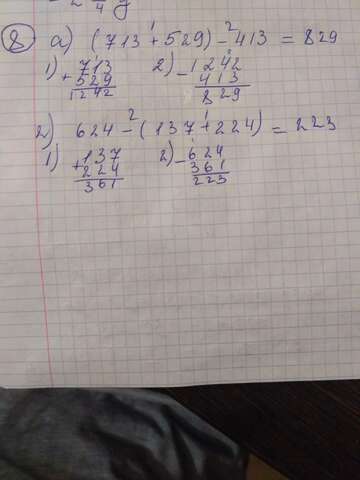 2 4 g
8 a) (713 + 529) - 413 = 829
1 2
1) + 713 529 1242 2) - 1242 413 829
г) 624 - (137 + 224) = 223
2 1
1) + 137 224 361 2) - 624 361 223